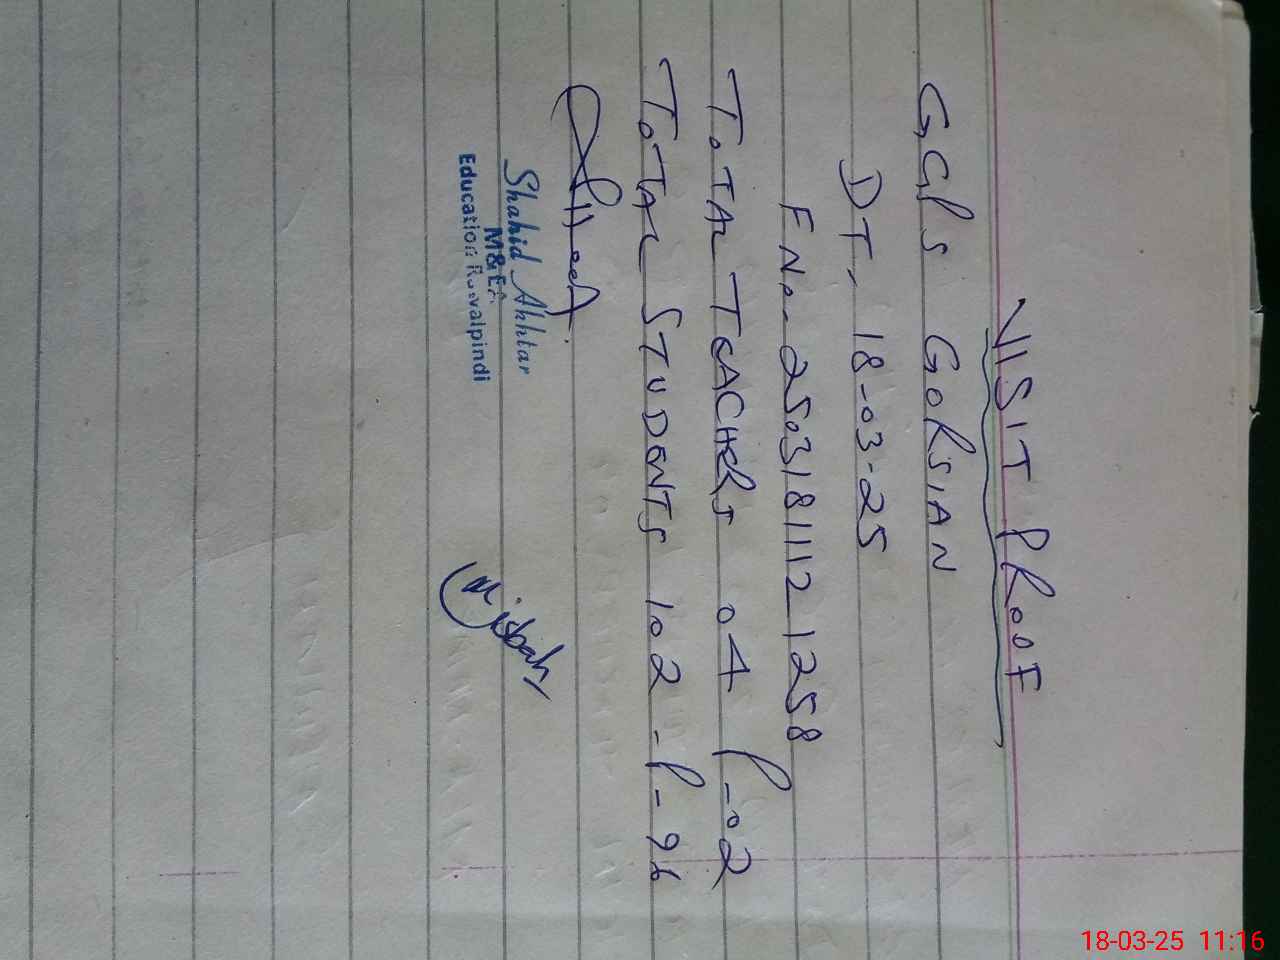 VISIT PROOF
GGPS GORSIAN
DT. 18-03-25
FNo. 25031811121258
TOTAL TEACHERS 04 P-02
TOTAL STUDENTS 102 - P-96
Shahid Akhtar
M&EA
Education Rawalpindi
Misbah
18-03-25 11:16